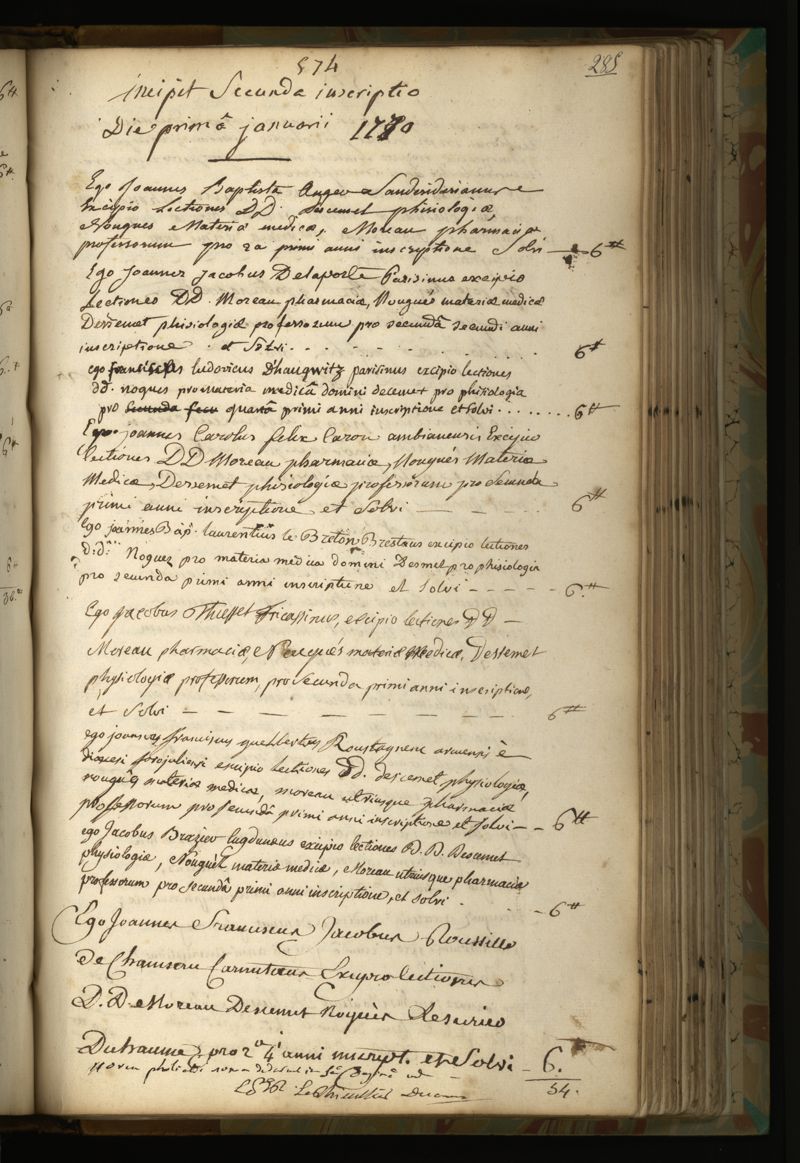 574
285
incipit Secunda inscriptio
Die primâ januarii 1770
Ego Joannes Baptista
excipio Lectiones DD. Descemet phisiologiæ,
Nougues Materiæ medicæ, Moreau pharmaciæ
professorum pro 2a primi anni inscriptione Solvi — 6tt
Ego Joannes jacobus Delaporte Parisinus excipio
Lectiones DD. Moreau pharmaciæ, Nougués materiæ medicæ
Dessemet phisiologiæ professorum pro secundâ secundi anni
inscriptione et Solvi . . . . . . . 6tt
ego franciscus ludovicus Dhaugwitz parisinus excipio lectiones
dd. nogues pro materia medicâ domini decemet pro phisiologia
pro secunda quartâ primi anni inscriptione et solvi . . . . . . . . 6tt
Ego joannes Carolus felix Caron ambianensis Excipio
lectiones DD Moreau pharmaciæ, Nougués Materiæ
Medicæ, Dessemet phisiologiæ professorum pro Secunda
primi anni inscriptione et Solvi — — — 6tt
Ego joannes Bap. laurentius le Breton Brestæus excipio lectiones
d: d: Noguez pro materia medica domini Desmet pro phisiologia
pro secunda primi anni inscriptione et solvi - - - - - 6.tt
Ego jacobus Thiesset Tricassinus, excipio lectiones DD —
Moreau pharmaciæ, Nougués materiæ Medicæ, Dessemet
physiologiæ professorum, pro Secunda primi anni inscriptione,
et Solvi — — — — — — — — 6tt
ego joannes franciscus Roustagnenc è
diocesi forojuliensi excipio lectiones DD. descemet physiologiæ,
nouguês materiæ medicæ, moreau utriusque pharmaciæ
professorum pro secundâ primi anni inscriptione et solvi - - 6tt
ego Jacobus Brazier lugdunæus excipio lectiones D. D. Descemet
physiologiæ, Nouguès materiæ medicæ, Moreau utriusque pharmaciæ
professorum pro secundâ primi anni inscriptione, et solvi . - 6tt
Ego Joannes Franciscus Jacobus Roussille
de Chamseru Carnutæus Excipio lectiones
D. D. Moreau Descemet Noguès
pro 2a 4i anni inscript. et Solvi - 6.
54.